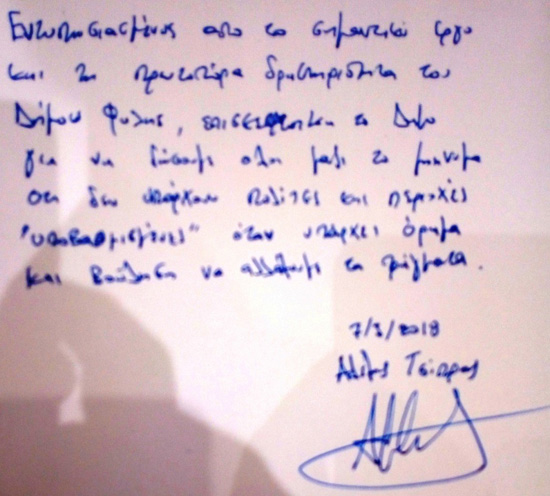 Εντυπωσιασμένος απο το σημαντικό έργο
και τη πρωτοπόρα δραστηριότητα του
Δήμου Φυλής, επισκέφτηκα το Δήμο
για να δώσουμε όλοι μαζί το μήνυμα
οτι δεν υπάρχουν πολίτες και περιοχές
"υποβαθμισμένες" όταν υπάρχει όραμα
και βούληση να αλλάξουμε τα πράγματα.
7/3/2018
Αλέξης Τσίπρας